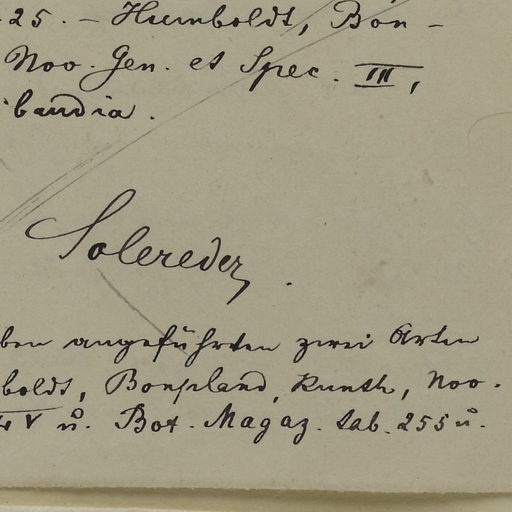 25. – Humboldt, Bon-
Noo. Gen. et Spec. III,
bandia.
Solereder.
ben angeführten zwei Arten
boldt, Bonpland, Kunth, Noo.
V u. Bot. Magaz. tab. 255 u.